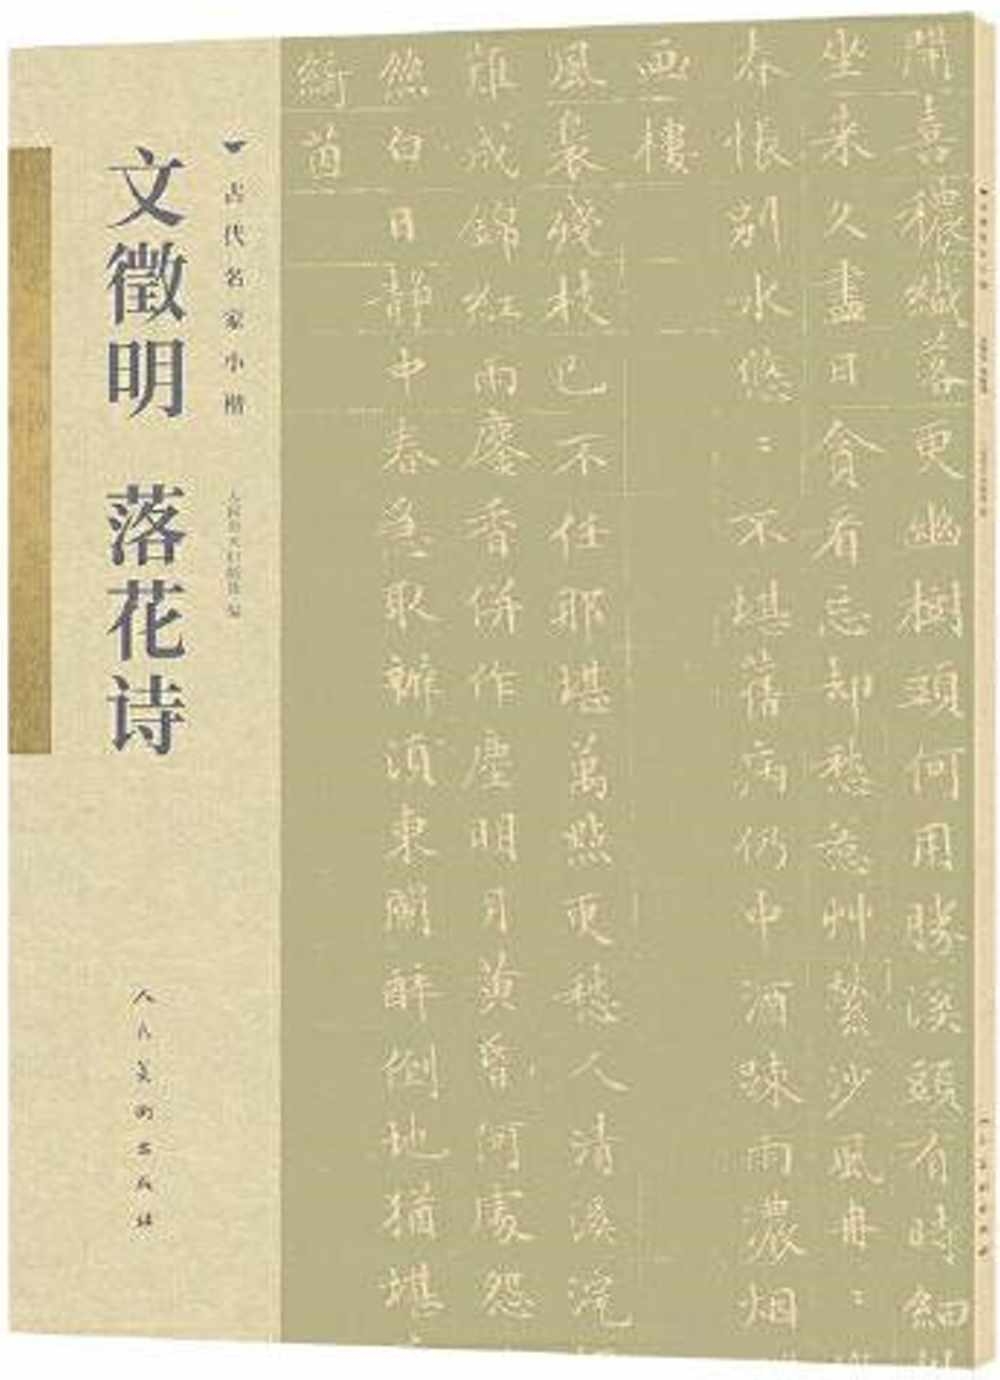 古代名家小楷
文徵明 落花诗
人民美术出版社 编
人民美術出版社
開喜穠纖落更幽樹頭何用勝溪頭有時細
坐来久盡日貪看忘却愁惹艸縈沙風冉〻
春悵別水悠〻不堪舊病仍中酒疎雨濃烟
画樓
風裊殘枝已不任那堪萬點更愁人清溪浣
雖成錦紅雨麏香併作塵明月黄昏何處怨
然白日靜中春急取辦湏東闌醉倒地猶堪
綺茵